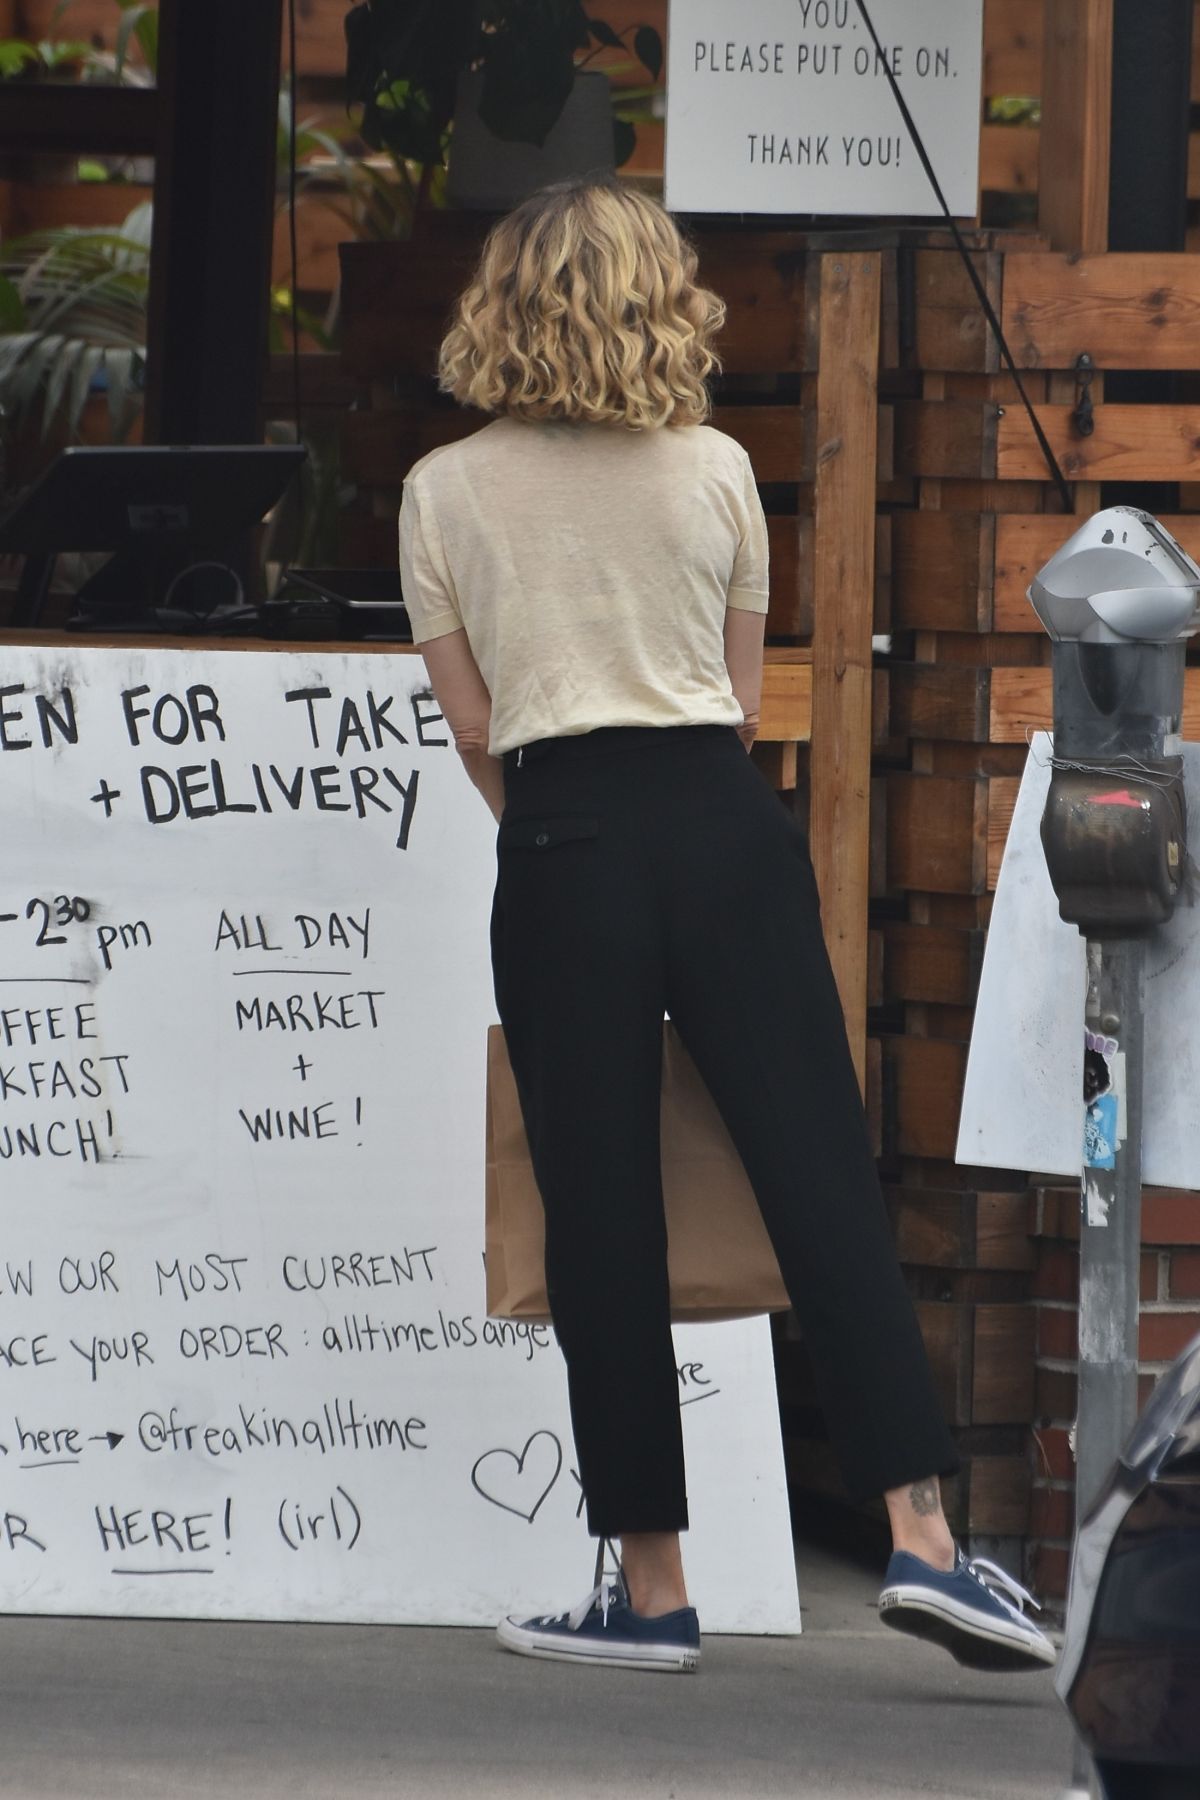 YOU.
PLEASE PUT ONE ON.
THANK YOU!
EN FOR TAKE
+ DELIVERY
-2³⁰ pm
FFEE
KFAST
UNCH!
ALL DAY
MARKET
+
WINE!
W OUR MOST CURRENT
ACE YOUR ORDER: alltimelosange
re
here → @freakinalltime
R HERE! (irl)